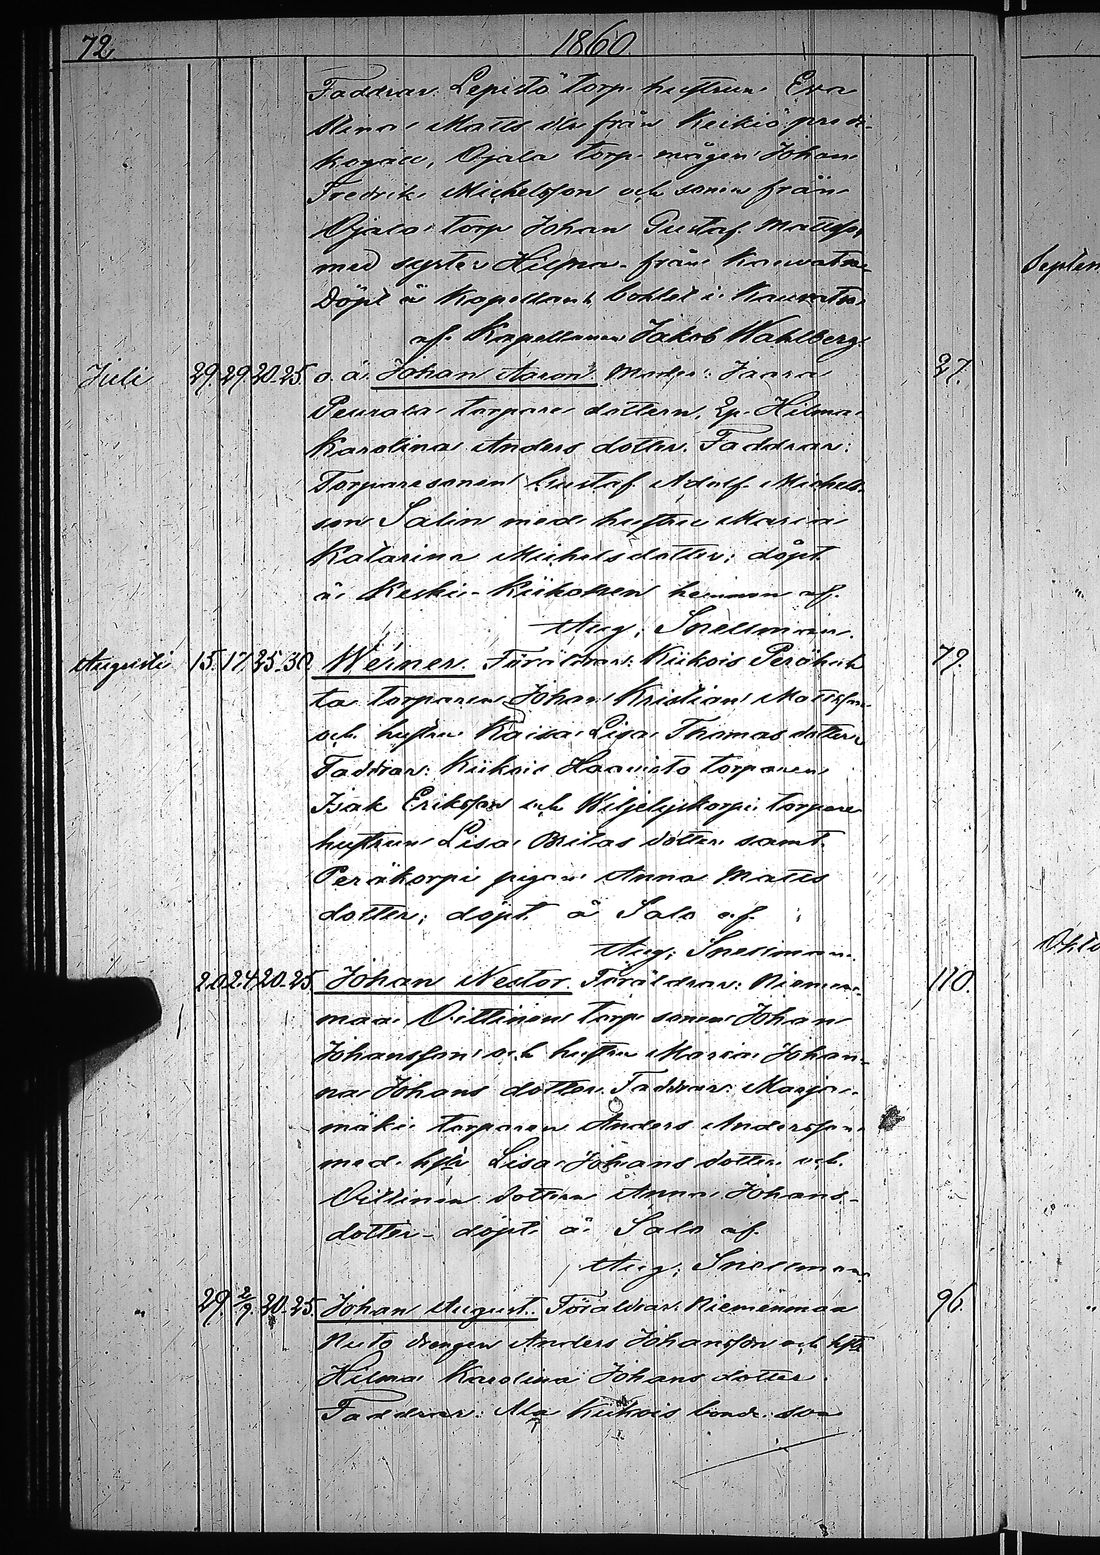 72. 1860.
Faddrar: Lepistö torp. hustrun Eva
Stina Matts dtr från Keikiö
Ojala torp. mågen Johan
Fredrik Michelsson och sonen från
Ojala torp Johan Gustaf Mattsson
med syster Hilma från Kauvatsa
Döpt å Kapellans bohlet i Kauvatsa
af Kapellanen Jakob Wahlberg.
Juli 29. 29. 20-25. o. ä. Johan Aaron. Moder: Jaara 27.
Peurala torpare dottern, Hilma
Karolina Anders dotter. Faddrar:
Torparesonen Gustaf Adolf Michels-
son Salin med hustru Maria
Katarina Michelsdotter; döpt
å Keski-Kiikoisen hemman af
Aug. Snellman.
Augusti 15. 17. 25-30. Werner. Föräldrar: Kiikois Peräkul 79.
ta torparen Johan Kristian Mattsson
och hustru Kaisa Lisa Thomas dotter
Faddrar: Kiikois Haavisto torparen
Isak Eriksson och Wiljelyskorpi torpare
hustrun Lisa dotter samt
Peräkorpi pigan Anna Matts
dotter; döpt å Salo af
Aug. Snellman.
20. 24. 20-25. Johan Nestor. Föräldrar: Niemen- 110.
maa Vittinen torp sonen Johan
Johansson och hustru Maria Johan-
na Johans dotter. Faddrar: Marja-
mäki torparen Anders Andersson
med hstr Lisa Johans dotter och
Vittinen dottern Anna Johans-
dotter döpt å Salo af
Aug. Snellman
" 29. 2/9. 20-25. Johan August. Föräldrar: Niemenmaa 96.
drengen Anders Johansson och hstr
Hilma Karolina Johans dotter.
Faddrar: Ala Kiikois bonde son
Septem
Okto
"